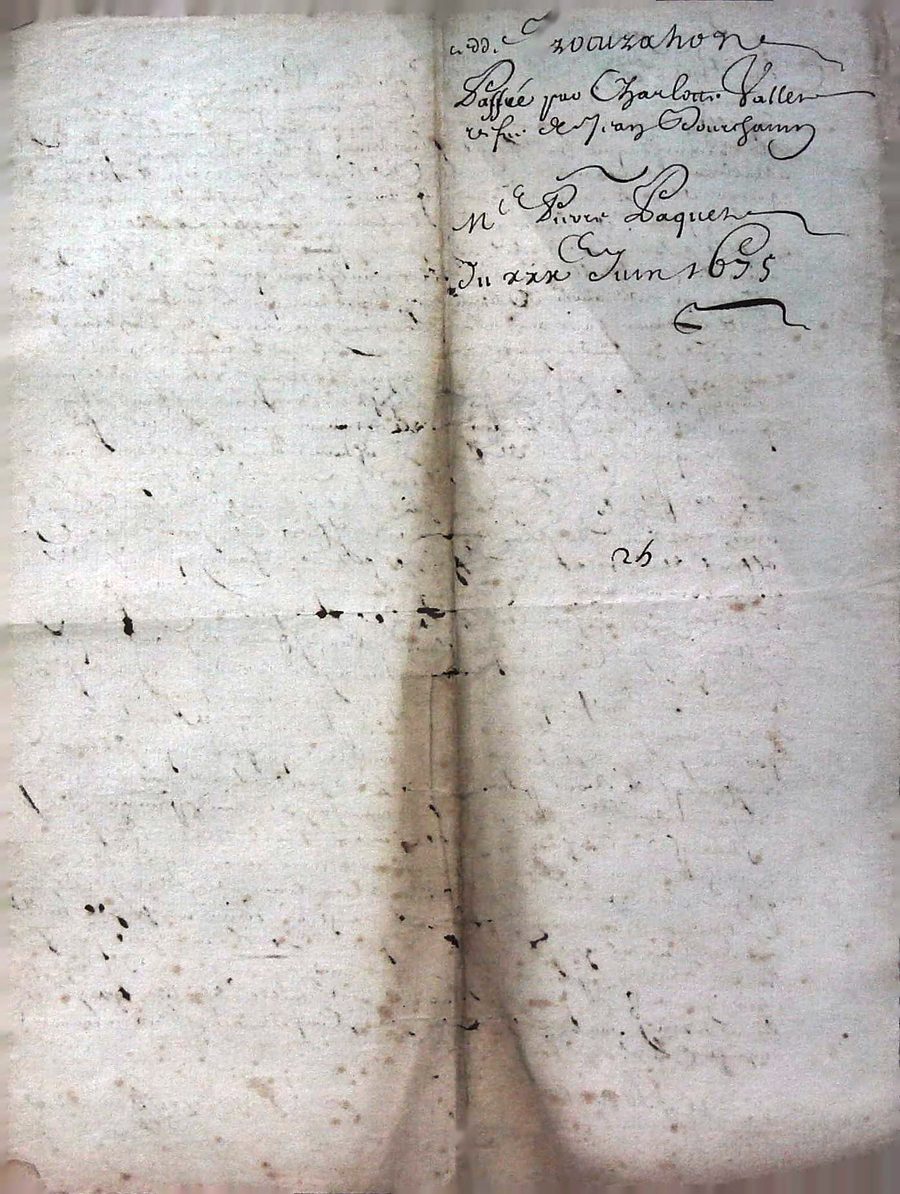 procuration
Passée par Charlotte Vallet
vefue de Jean Bourcham
Me Pierre Paquet
Du xxxe Juin 1675
26